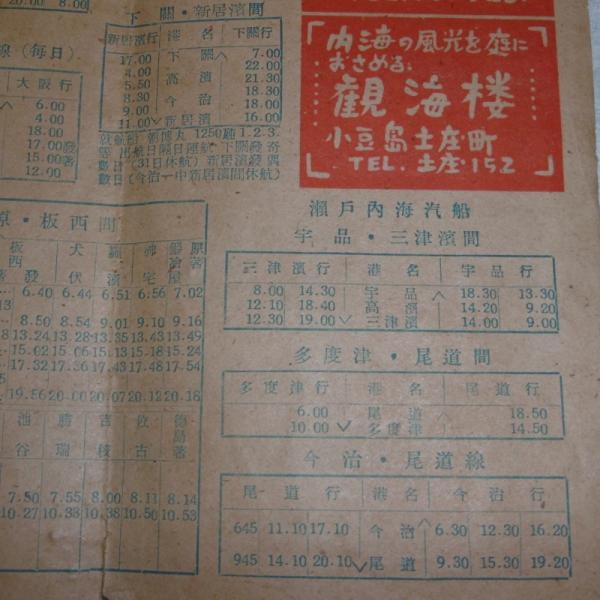 20.00 8.00
線(毎日)
大阪行
6.00
4.00
18.00
17.00発
15.00着
12.00
下關・新居濱間
新居濱行 港名 下關行
17.00 下關 7.00
22.00
4.00 高濱 21.30
5.50 18.30
8.30 今治 18.00
9.00
11.00 新居濱 16.00
1250噸1.2.3.
數日(31日休航)新居濱發偶
數日(今治一中新居濱間休航)
内海の風光を庭に
おさめる。
觀海楼
小豆島土庄町
TEL.土庄・152
瀬戸内海汽船
宇品・三津濱間
三津濱行 港名 宇品行
8.00 14.30 宇品 18.30 13.30
12.10 18.40 高濱 14.20 9.20
12.30 19.00 三津濱 14.00 9.00
多度津・尾道間
多度津行 港名 尾道行
6.00 尾道 18.50
10.00 多度津 14.50
今治・尾道線
尾道行 港名 今治行
645 11.10 17.10 今治 6.30 12.30 16.20
945 14.10 20.10 尾道 9.30 15.30 19.20
原・板西間
6.40 6.44 6.51 6.56 7.02
8.50 8.54 9.01 9.10 9.16
13.24 13.28 13.35 13.43 13.49
15.02 15.06 15.13 15.18 15.24
17.32 17.36 17.43 17.48 17.54
19.56 20.00 20.07 20.12 20.18
池谷 勝瑞 吉成 佐古 徳島着
7.50 7.55 8.00 8.11 8.14
10.27 10.33 10.38 10.50 10.53